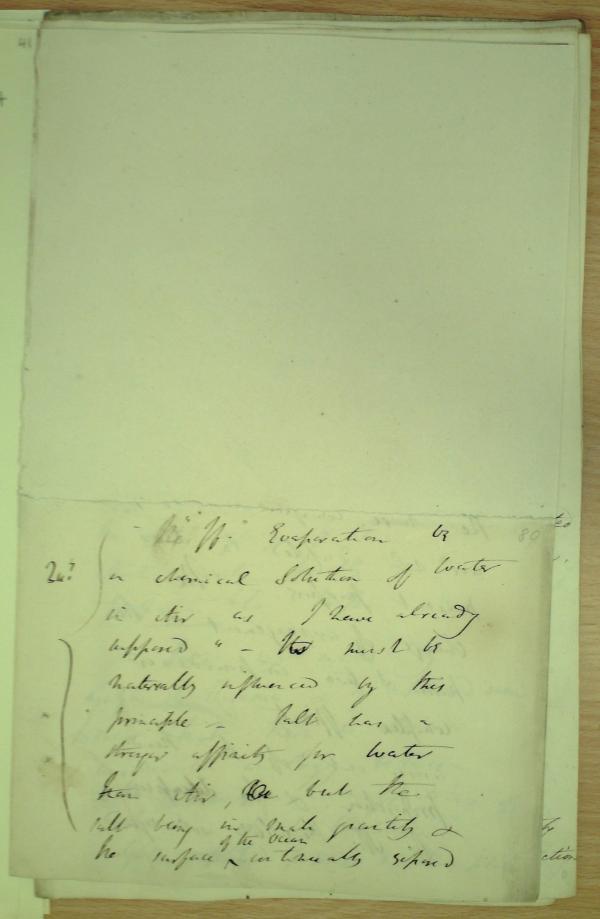 If - Evaporation be 80
a chemical Solution of Water
in Air as I have already
supposed " - It must be
naturally influenced by this
principle - Salt has a
stronger affinity for Water
than Air, but the
salt being in small quantity &
of the ocean
the surface continually exposed